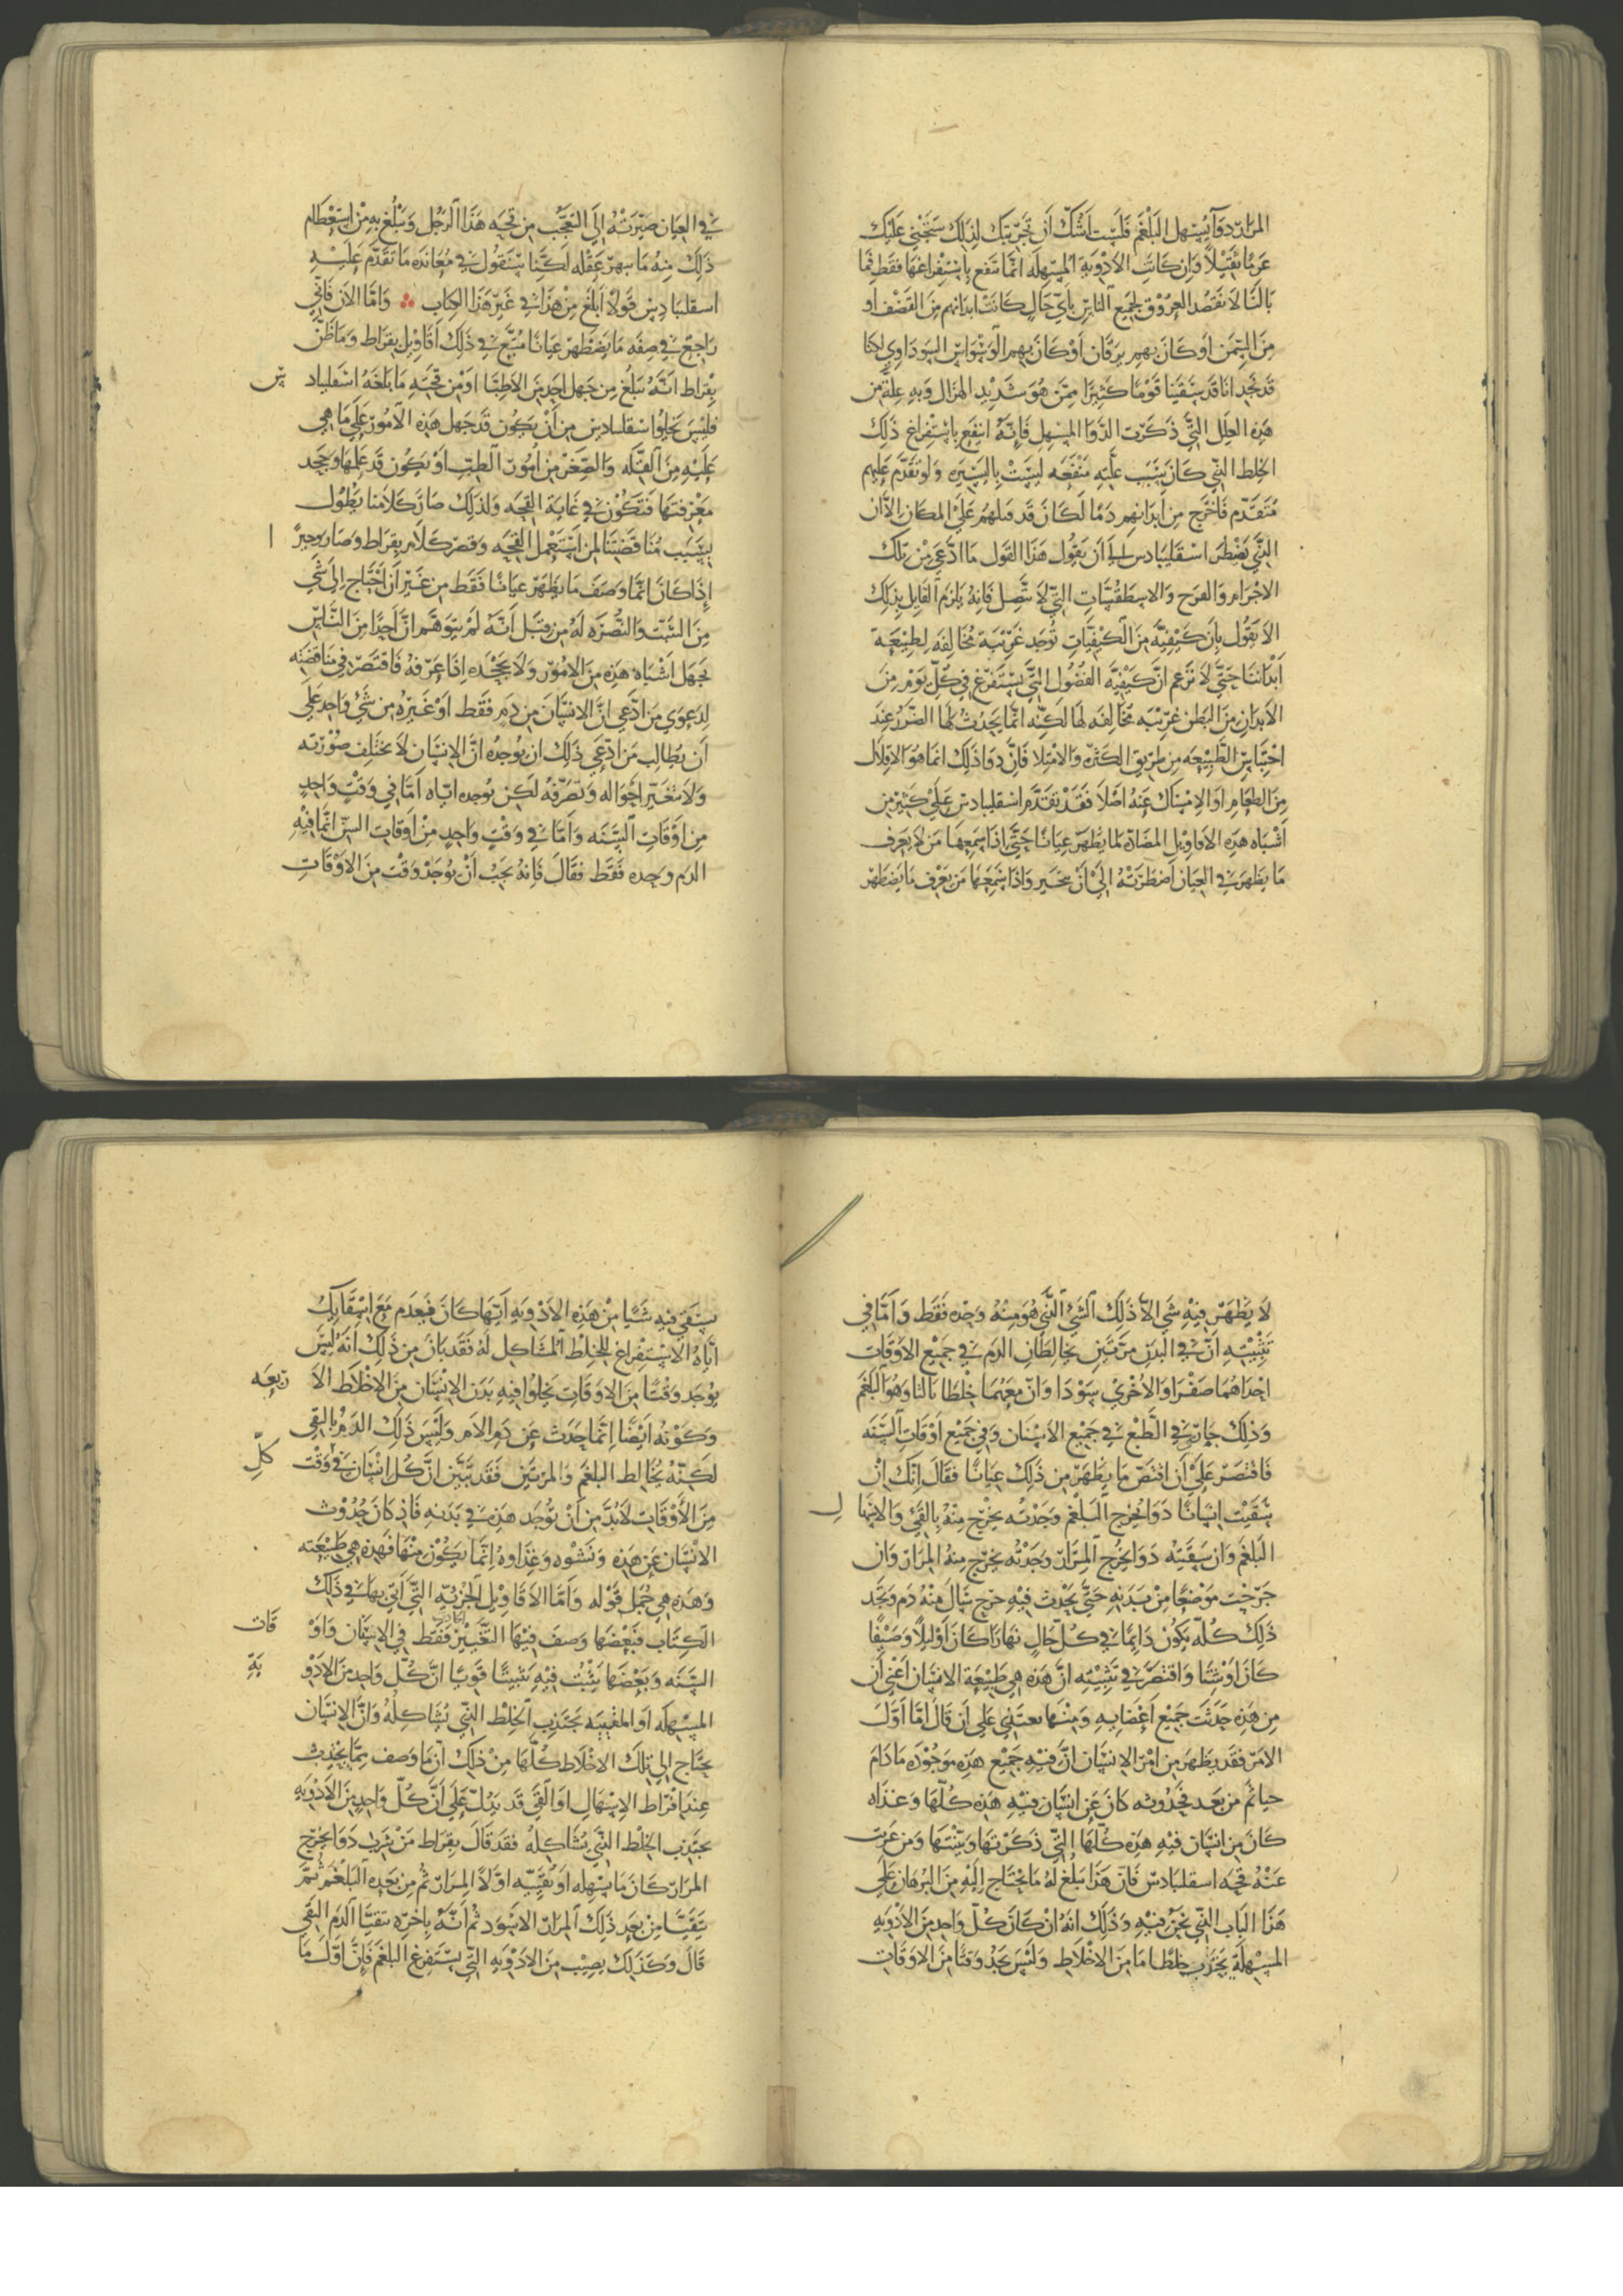 المرار دوآ يسهل البلغم فلست اشك ان تجربتك لذلك ستجني عليك
غرمًا ثقيلًا وان كانت الادوية المسهله انما تنفع باستفراغها فقط فما
بالنا لا نفصد العروق لجميع الناس بأي حال كانت ابدانهم من القضف او
من السمن او كان بهم يرقان او كان بهم الوسواس السوداوي لكنا
قد نجد انا قد سقينا قومًا كثيرًا ممن هو شديد الهزال وبه علة من
هذه العلل التي ذكرت الدوا المسهل فانه انتفع باستفراغ ذلك
الخلط الذي كان يتسبب عليه منفعه ليست باليسيره ولو تقدم عليهم
متقدم فاخرج من ابدانهم دمًا لكان قد قتلهم على المكان الآن
الذي يضطر اسقليبادس الى ان يقول هذا القول ما ادعى من تلك
الاجرام والفرج والاسطقسات التي لا تتصل فانه يلزم القايل بذلك
الا يقول بان كيفية من الكيفيات توجد غريبة مخالفه لطبيعة
ابداننا حتى لا نزعم ان كيفية الفضول التي تستفرغ في كل يوم من
الابدان من البطن غريبه مخالفه لها لكنه انما يحدث لها الضرر عند
احتباس الطبيعه من طريق الكثره والامتلا فان دوا ذلك انما هو الاقلال
من الطعام او الامساك عنه اصلًا فقد تقدم اسقليبادس على كثير من
أشباه هذه الاقاويل المضادة لما يظهر عيانًا حتى اذا سمعها من لا يعرف
ما يظهر في العيان اضطرته الى ان يتحير واذا سمعها من يعرف ما يظهر
في العيان صيرته الي التعجب من قحة هذا الرجل ويبلغ به من استعظام
ذلك منه ما يبهر عقله لكنا سنقول في معانده ما تقدم عليه
اسقليبادس قولًا ابلغ من هذا في غير هذا الكتاب ؞ واما الان فاني
راجع في صفه ما يظهر عيانًا متبع في ذلك اقاويل بقراط وما ظن
بقراط انه يبلغ من جهل احد من الاطبا او من قحته ما بلغه اسقلياد س
فليس يخلوا اسقلبادس من أن يكون قد جهل هذه الامور على ما هي
عليه من القله والصغر من امور الطب او يكون قد علمها وجحد
معرفتها فتكون في غاية القحه ولذلك صار كلامنا يطول
بسبب مناقضتنا لمن استعمل القحه وقصر كلام بقراط وصار وجيزً ا
إذ كان انما وصف ما يظهر عيانًا فقط من غير ان احتاج الى شي
من التثبت والنصره له من قبل أنه لم يتوهم ان احدًا من الناس
يجهل اشباه هذه من الامور ولا يجحده اذا عرفه فاقتصر في مناقضته
لدعوي من ادعي ان الانسان من دم فقط او غيره من شي واحد علي
أن يطالب من ادعي ذلك ان يوجده ان الانسان لا تختلف صورته
ولا تتغير احواله وتصرفه لكن يوجده اياه اما في وقت واحد
من اوقات السنه واما في وقت واحد من اوقات السن انما فيه
الدم وحده فقط فقال فانه يجب أن يوجد وقت من الاوقات
لا يظهر فيه شي الا ذلك الشي الذي هو منه وحده فقط واما في
تثبيته ان في البدن مرتين يخالطان الدم في جميع الاوقات
احداهما صفرا والاخري سودا وان معهما خلطا ثالثا وهو البلغم
وذلك جار في الطبع في جميع الاسنان وفي جميع اوقات السنه
فاقتصر على ان اقتص ما يظهر من ذلك عيانًا فقال انك ان
سقيت انسانًا دوا يخرج البلغم وجدته يخرج منه بالقيء والاسها ل
البلغم وان سقيته دوا يخرج المرار وجدته يخرج منه المرار وان
جرحت موضعًا من بدنه حتى يحدث فيه جرح سال منه دم وتجد
ذلك كله يكون دايمًا في كل حال نهارًا كان او ليلًا وصيفًا
كان او شتا واقتصر في تثبيته ان هذه هي طبيعة الانسان اعني ان
من هذه حدثت جميع اعضايه ومنها يغتذي علي ان قال اما اول
الامر فقد يظهر من امر الانسان ان فيه جميع هذه موجوده ما دام
حيا ثم من بعد فحدوثه كان عن انسان فيه هذه كلها وغذاه
كان من انسان فيه هذه كلها التي ذكرتها وبينتها ومن عريت
عنه قحه اسقلبادس فان هذا يبلغ له ما يحتاج اليه من البرهان على
هذا الباب الذي نحن فيه وذلك انه ان كان كل واحد من الادويه
المسهله يجذب خلطا ما من الاخلاط وليس يجد وقتا من الاوقات
يسقي فيه شيًا من هذه الادويه ايها كان فيعدم مع اسقايك
اياه الاستفراغ للخلط المشاكل له فقد بان من ذلك انه ليس
يوجد وقتًا من الاوقات يخلوا فيه بدن الانسان من الاخلاط الا ربعه
وكونه ايضًا انما حدث عن دم الام وليس ذلك الدم بالنقي
لكنه يخالط البلغم والمرتين فقد تبين ان كل انسان في كلِّ وقت
من الأوقات لا بد من ان توجد هذه في بدنه فاذ كان حدوث
الانسان عن هذه ونشوه وغذاوه انما يكون منها فهذه هي طبيعته
وهذه هي جمل قوله واما الاقاويل الجزئيه التي أتى بها في ذلك
الكتاب فبعضها وصف فيها التغيير فقط في الاسنان واو قات
السنه وبعضها يثبت فيه تثبيتًا قويًا ان كل واحد من الادو ية
المسهله او المقييه يجتذب الخلط الذي يشاكله وان الانسان
يحتاج الى تلك الاخلاط كلها من ذلك ان ما وصف مما يحدث
عند افراط الاسهال او القي قد يدل على ان كل واحد من الادويه
يجتذب الخلط الذي يشاكله فقد قال بقراط من شرب دوا يخرج
المرار كان ما يسهله او يقييه اولًا المرار ثم من بعده البلغم ثم
يتقيا من بعد ذلك المرار الاسود ثم أنه بأخره يتقيا الدم النقي
قال وكذلك يصيب من الادويه التي تستفرغ البلغم فإن اول ما